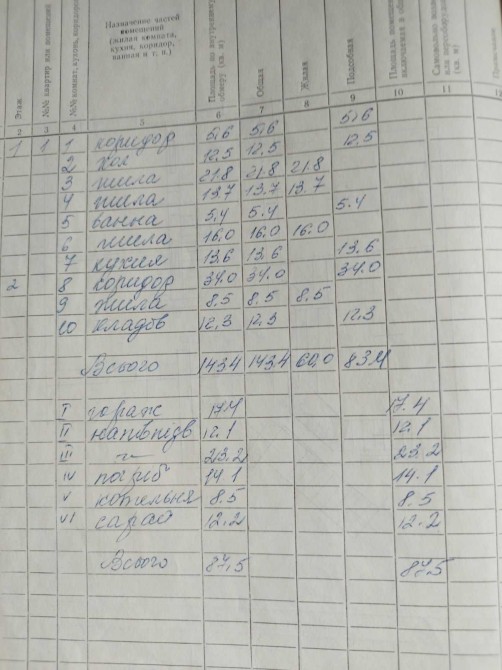 Этаж
№№ квартир или помещений
№№ комнат, кухонь, коридоров
Назначение частей помещений (жилая комната, кухня, коридор, ванная и т. п.)
Площадь по внутреннему обмеру (кв. м)
Общая
Жилая
Подсобная
2 3 4 5 6 7 8 9 10 11 12
1 1 1 коридор 5,6 5,6 5,6
2 хол 12.5 12.5 12.5
3 жила 21.8 21.8 21.8
4 жила 13.7 13.7 13.7
5 ванна 5,4 5.4 5.4
6 жила 16,0 16.0 16.0
7 кухня 13.6 13.6 13.6
2 8 коридор 34.0 34.0 34.0
9 жила 8.5 8.5 8.5
10 кладов 12,3 12,3 12.3
Всього 143,4 143,4 60,0 83,4
I гараж 17.4 17.4
II напівпідв 12.1 12.1
III 23.2 23.2
IV погріб 14.1 14.1
V котельня 8.5 8.5
VI сарай 12.2 12.2
Всього 87,5 87,5